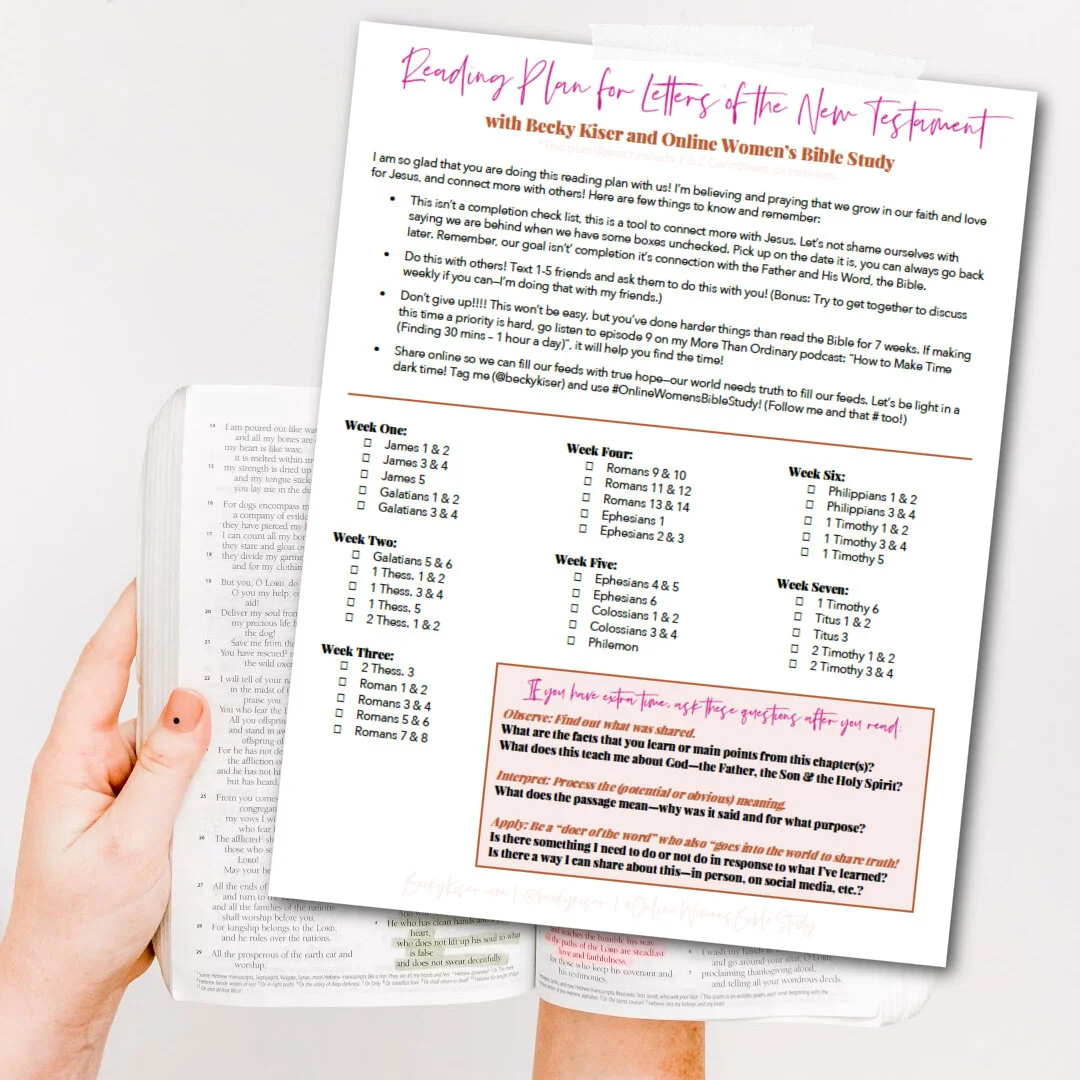 Reading Plan for Letters of the New Testament
with Becky Kiser and Online Women's Bible Study
*This plan doesn't include 1 & 2 Corinthians, or Hebrews
I am so glad that you are doing this reading plan with us! I'm believing and praying that we grow in our faith and love
for Jesus, and connect more with others! Here are few things to know and remember:
• This isn't a completion check list, this is a tool to connect more with Jesus. Let's not shame ourselves with
saying we are behind when we have some boxes unchecked. Pick up on the date it is, you can always go back
later. Remember, our goal isn't' completion it's connection with the Father and His Word, the Bible.
• Do this with others! Text 1-5 friends and ask them to do this with you! (Bonus: Try to get together to discuss
weekly if you can—I'm doing that with my friends.)
• Don't give up!!!! This won't be easy, but you've done harder things than read the Bible for 7 weeks. If making
this time a priority is hard, go listen to episode 9 on my More Than Ordinary podcast: "How to Make Time
(Finding 30 mins – 1 hour a day)", it will help you find the time!
• Share online so we can fill our feeds with true hope—our world needs truth to fill our feeds. Let's be light in a
dark time! Tag me (@beckykiser) and use #OnlineWomensBibleStudy! (Follow me and that # too!)
Week One:
James 1 & 2
James 3 & 4
James 5
Galatians 1 & 2
Galatians 3 & 4
Week Two:
Galatians 5 & 6
1 Thess. 1 & 2
1 Thess. 3 & 4
1 Thess. 5
2 Thess. 1 & 2
Week Three:
2 Thess. 3
Roman 1 & 2
Romans 3 & 4
Romans 5 & 6
Romans 7 & 8
Week Four:
Romans 9 & 10
Romans 11 & 12
Romans 13 & 14
Ephesians 1
Ephesians 2 & 3
Week Five:
Ephesians 4 & 5
Ephesians 6
Colossians 1 & 2
Colossians 3 & 4
Philemon
Week Six:
Philippians 1 & 2
Philippians 3 & 4
1 Timothy 1 & 2
1 Timothy 3 & 4
1 Timothy 5
Week Seven:
1 Timothy 6
Titus 1 & 2
Titus 3
2 Timothy 1 & 2
2 Timothy 3 & 4
If you have extra time, ask these questions after you read:
Observe: Find out what was shared.
What are the facts that you learn or main points from this chapter(s)?
What does this teach me about God—the Father, the Son & the Holy Spirit?
Interpret: Process the (potential or obvious) meaning.
What does the passage mean—why was it said and for what purpose?
Apply: Be a "doer of the word" who also "goes into the world to share truth!
Is there something I need to do or not do in response to what I've learned?
Is there a way I can share about this—in person, on social media, etc.?
BeckyKiser.com | @beckykiser | #OnlineWomensBibleStudy
14 I am poured out like
and all my bones are
my heart is like wax;
it is melted within
15 my strength is dried up
and my tongue
you lay me in the
16 For dogs encompass
a company of
they have pierced my
17 I can count all my
they stare and gloat
18 they divide my
and for my
19 But you, O LORD, do
O you my help,
aid!
20 Deliver my soul from
my precious life
the dog!
21 Save me from the
You have rescued
the wild oxen
22 I will tell of your
in the midst of
praise you
You who fear the
All you
and stand in
offspring of
For he has not
the affliction of
and he has not
but has heard
25 From you comes
my vows I
who fear
26 The afflicted
those who
LORD!
May your
27 All the ends of
and turn to
and all the families of the nations
shall worship before you.
28 For kingship belongs to the LORD,
and he rules over the nations.
29 All the prosperous of the earth eat and
worship;
4 He who has clean hands and a
heart,
who does not lift up his soul to what
is false
and does not swear deceitfully.
and teaches the humble his way.
All the paths of the LORD are steadfast
love and faithfulness,
for those who keep his covenant and
his testimonies.
I wash my hands in
and go around your altar, O LORD,
7 proclaiming thanksgiving aloud,
and telling all your wondrous deeds.